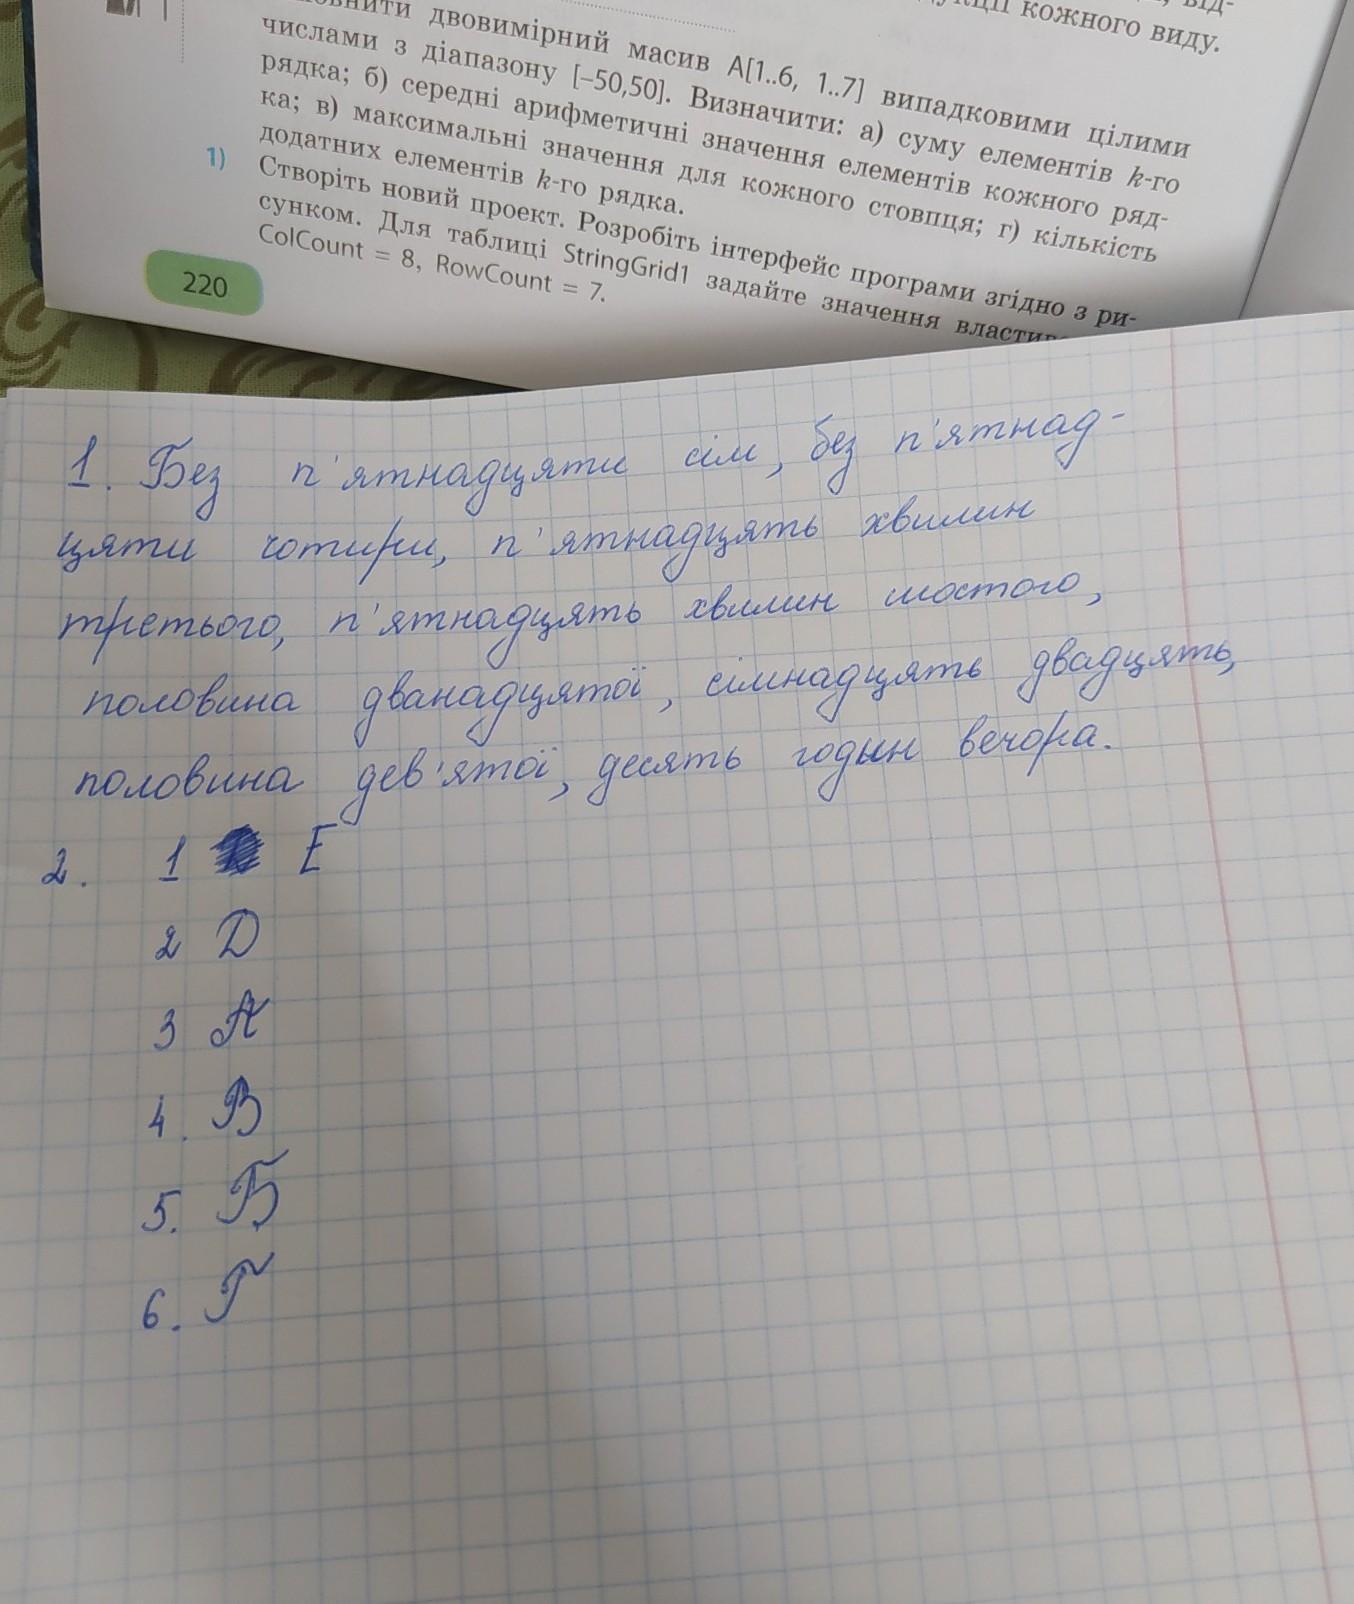 кожного виду.
двовимірний масив A[1..6, 1..7] випадковими цілими
числами з діапазону [–50,50]. Визначити: а) суму елементів k-го
рядка; б) середні арифметичні значення елементів кожного ряд-
ка; в) максимальні значення для кожного стовпця; г) кількість
додатних елементів k-го рядка.
1) Створіть новий проект. Розробіть інтерфейс програми згідно з ри-
сунком. Для таблиці StringGrid1 задайте значення
ColCount = 8, RowCount = 7.
220
1. Без п'ятнадцяти сім, без п'ятнад-
цяти чотири, п'ятнадцять хвилин
третього, п'ятнадцять хвилин шостого,
половина дванадцятої, сімнадцять двадцять,
половина дев'ятої, десять годын вечора.
2. 1 Е
2 Д
3 А
4. В
5. Б
6. Г